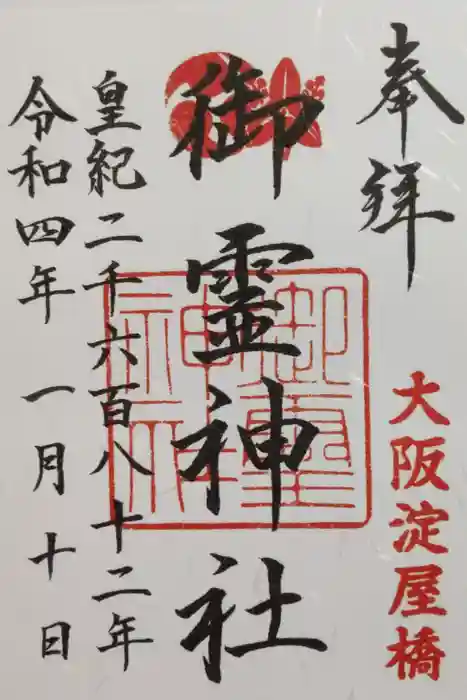 奉拝
大阪淀屋橋
御霊神社
御霊神社
皇紀二千六百八十二年
令和四年 一月十日